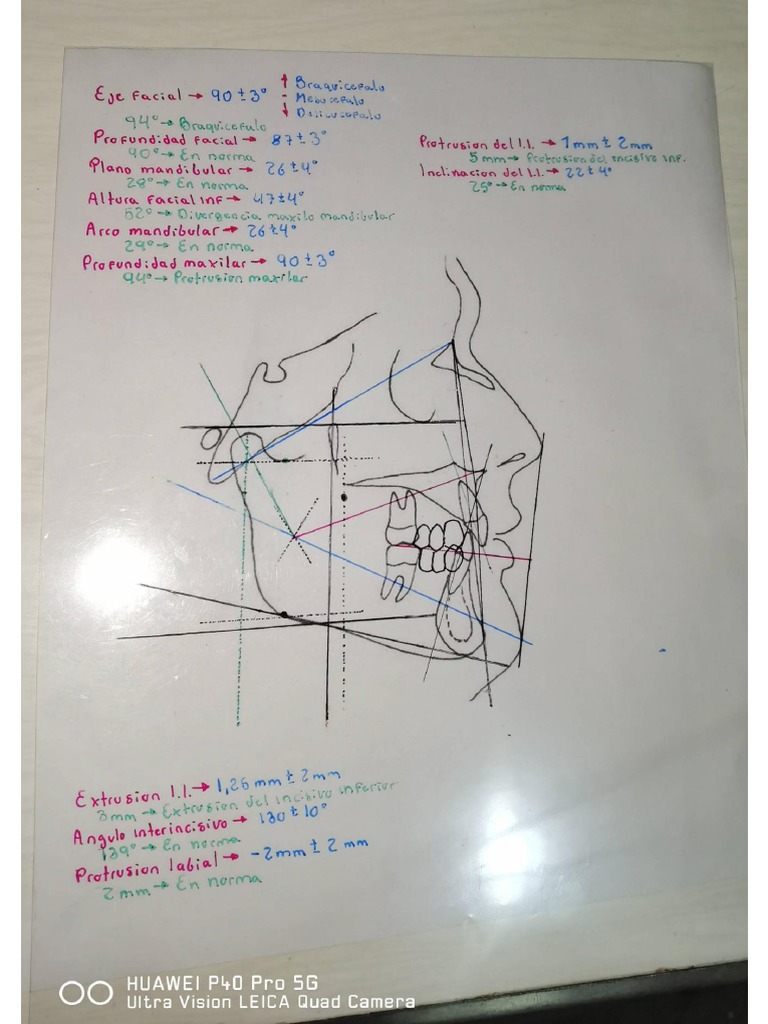 Eje facial → 90 ± 3°
↑ Braquicefalo
- Mesocefalo
↓ Dolicocefalo
94° → Braquicefalo
Profundidad facial → 87 ± 3°
90° → En norma
Plano mandibular → 26 ± 4°
28° → En norma
Altura facial inf → 47 ± 4°
52° → Divergencia maxilo mandibular
Arco mandibular → 26 ± 4°
29° → En norma
Profundidad maxilar → 90 ± 3°
94° → Protrusion maxilar
Protrusion del I.I. → 1mm ± 2mm
5mm → Protrusion del incisivo inf.
Inclinacion del I.I. → 22 ± 4°
25° → En norma
Extrusion I.I. → 1,25 mm ± 2mm
3mm → Extrusion del incisivo inferior
Angulo interincisivo → 130 ± 10°
139° → En norma
Protrusion labial → -2mm ± 2 mm
2 mm → En norma
HUAWEI P40 Pro 5G
Ultra Vision LEICA Quad Camera